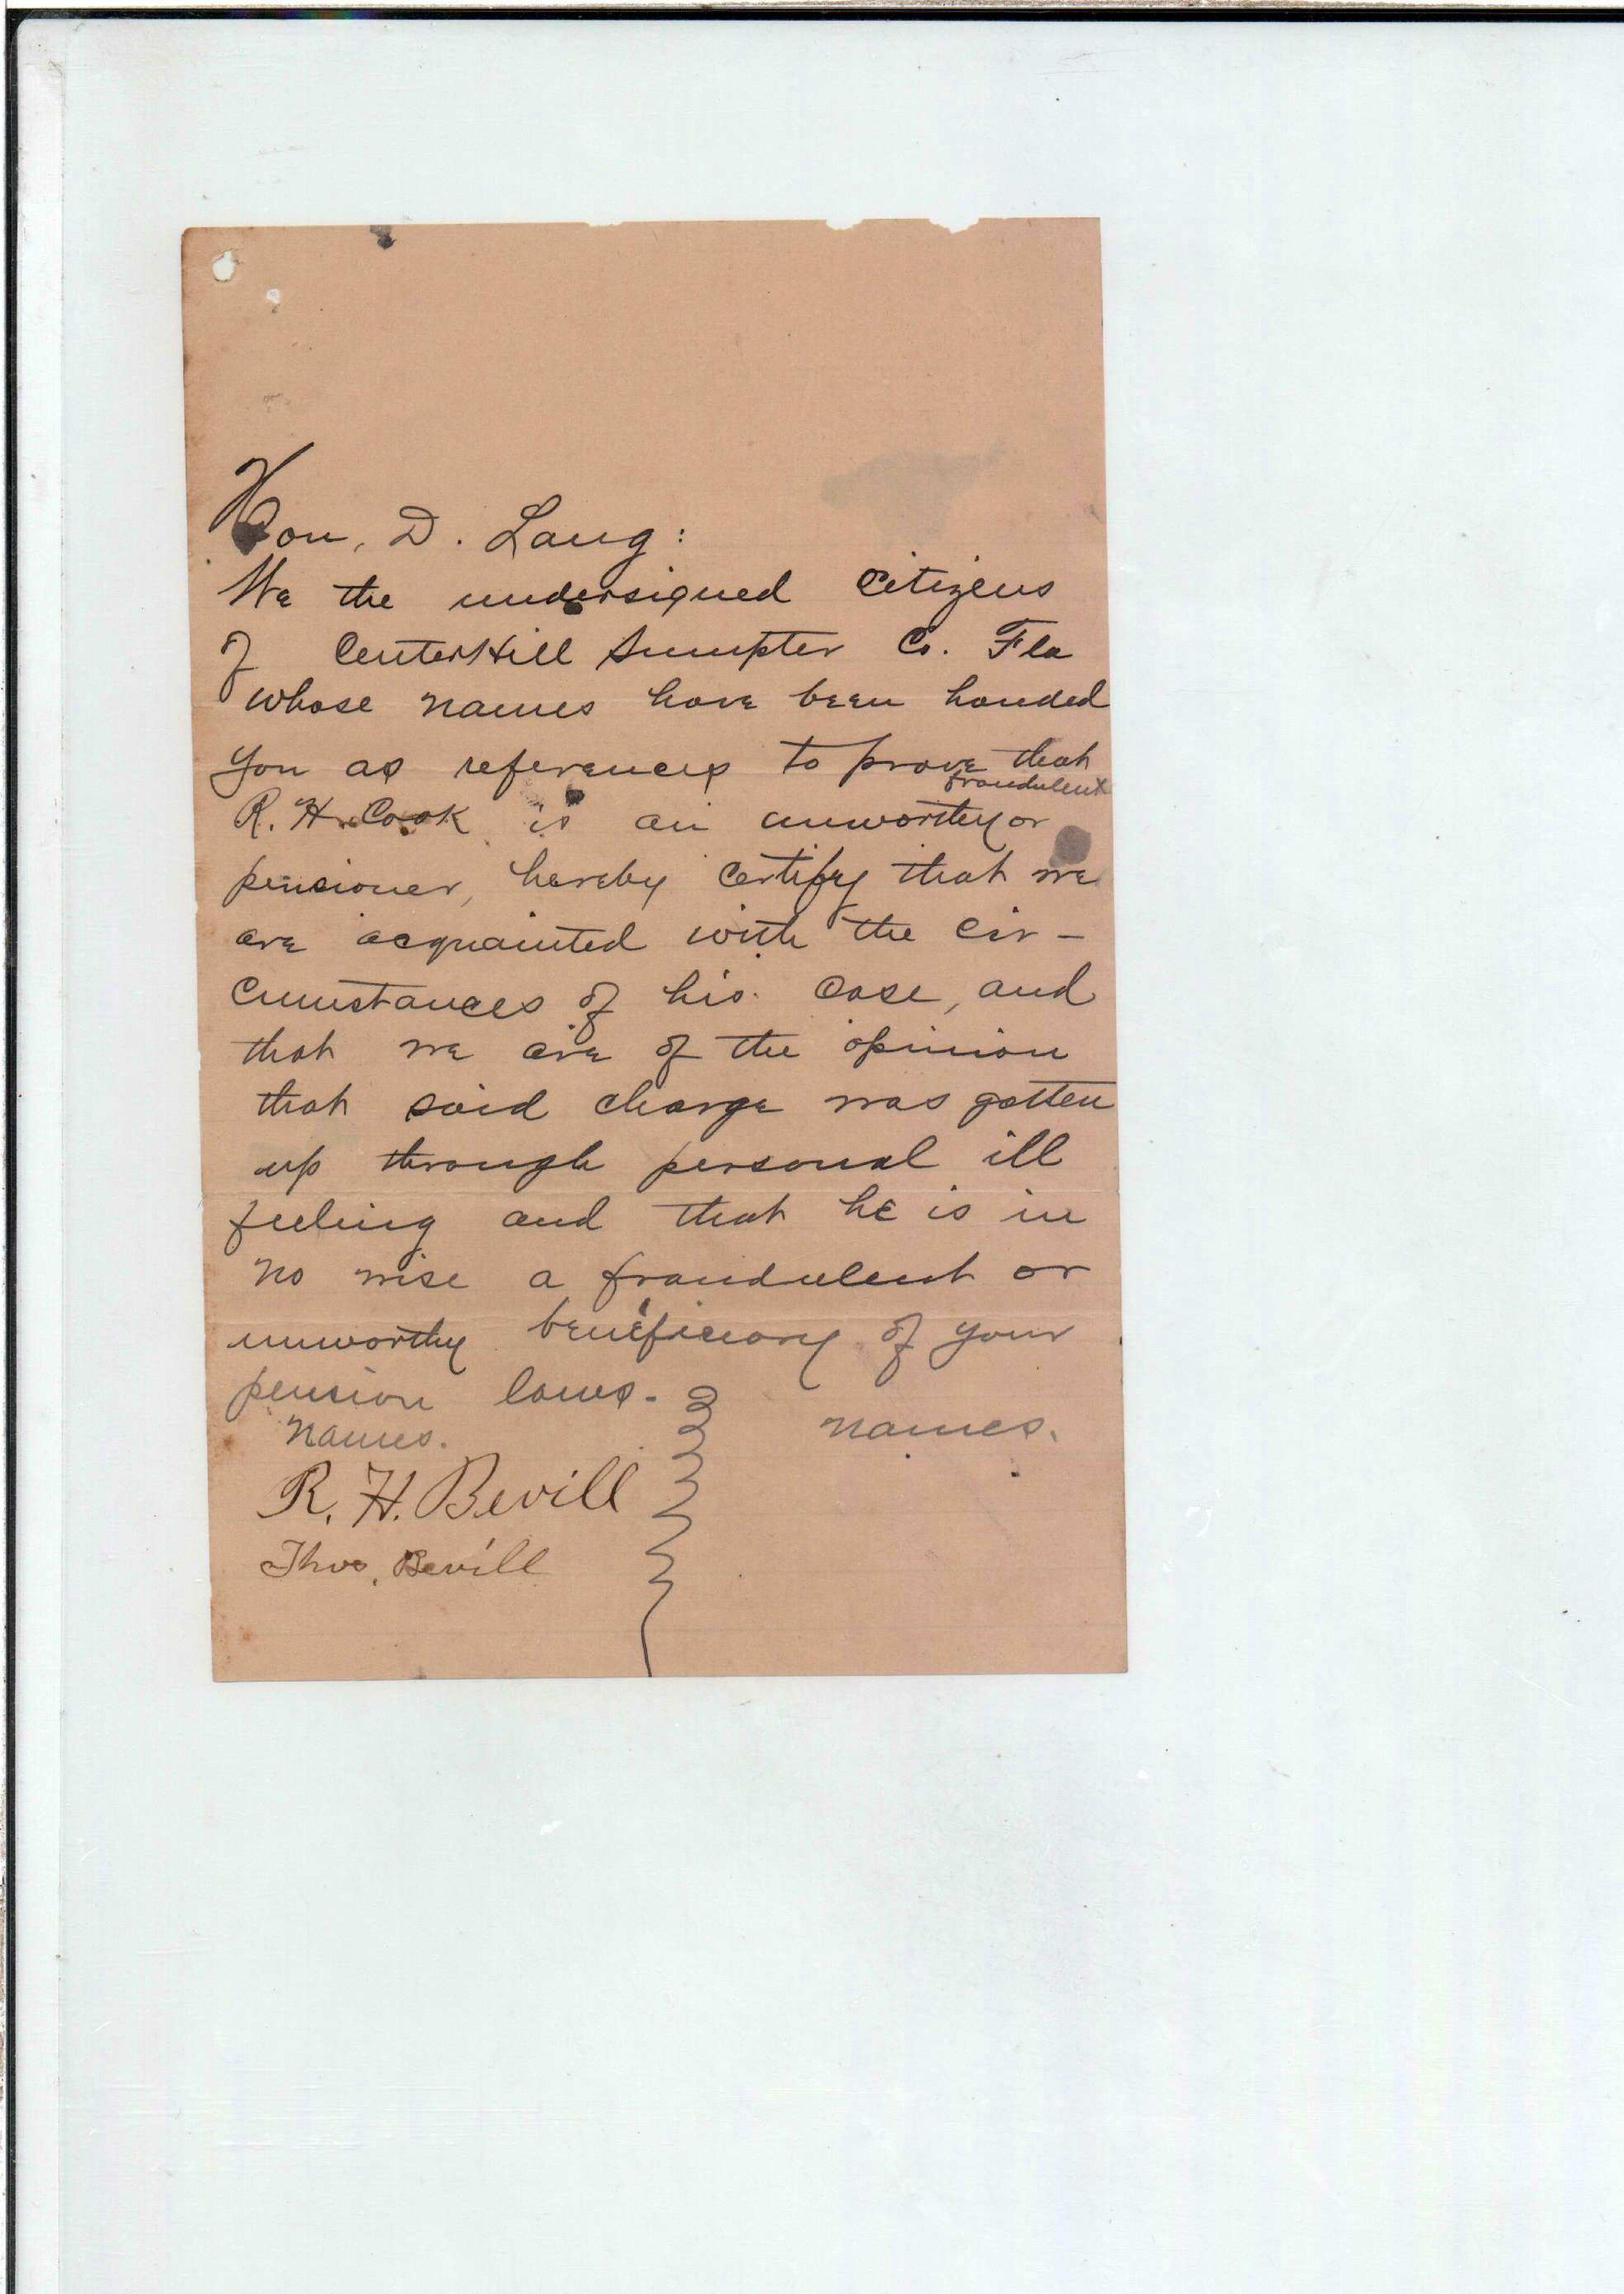 Hon, D. Lang:
We the undersigned citizens
of CenterHill Sumpter Co. Fla
whose names have been handed
you as references to prove that
R. H. Cook is an unworthy or fraudulent
pensioner, hereby certify that we
are acquainted with the cir-
cumstances of his case, and
that we are of the opinion
that said charge was gotten
up through personal ill
feeling and that he is in
no wise a fraudulent or
unworthy beneficiary of your
pension laws.
Names. names.
R. H. Bevill
Thos. Bevill